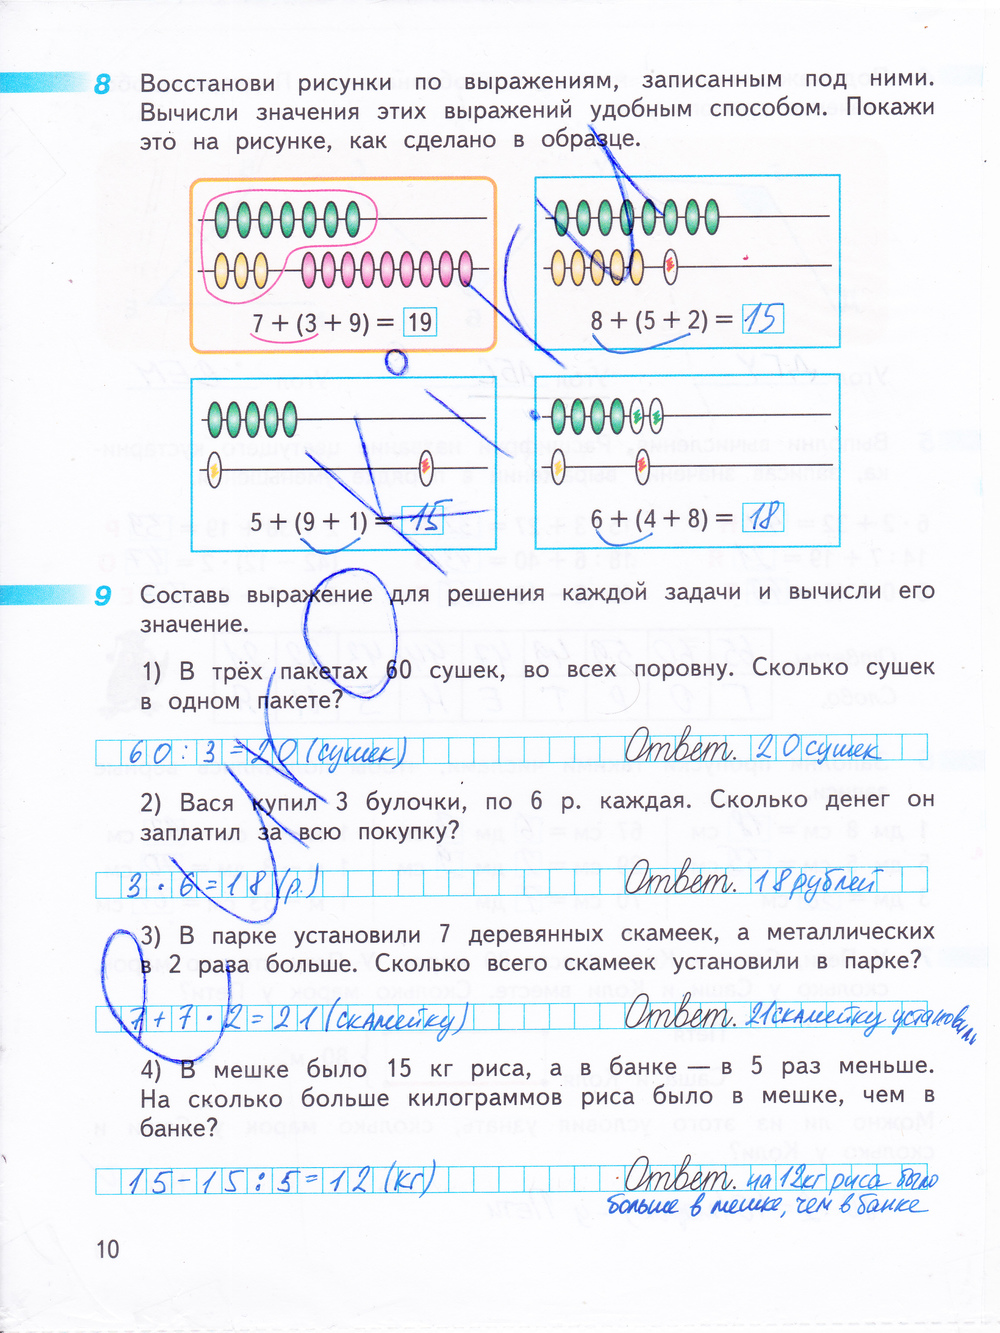 8 Восстанови рисунки по выражениям, записанным под ними.
Вычисли значения этих выражений удобным способом. Покажи
это на рисунке, как сделано в образце.
7 + (3 + 9) = 19
8 + (5 + 2) = 15
5 + (9 + 1) = 15
6 + (4 + 8) = 18
9 Составь выражение для решения каждой задачи и вычисли его
значение.
1) В трёх пакетах 60 сушек, во всех поровну. Сколько сушек
в одном пакете?
60 : 3 = 20 (сушек) Ответ. 20 сушек
2) Вася купил 3 булочки, по 6 р. каждая. Сколько денег он
заплатил за всю покупку?
3 · 6 = 18 (р.) Ответ. 18 рублей
3) В парке установили 7 деревянных скамеек, а металлических
в 2 раза больше. Сколько всего скамеек установили в парке?
7 + 7 · 2 = 21 (скамейку) Ответ. 21 скамейку установили
4) В мешке было 15 кг риса, а в банке — в 5 раз меньше.
На сколько больше килограммов риса было в мешке, чем в
банке?
15 - 15 : 5 = 12 (кг) Ответ. на 12 кг риса было
больше в мешке, чем в банке
10